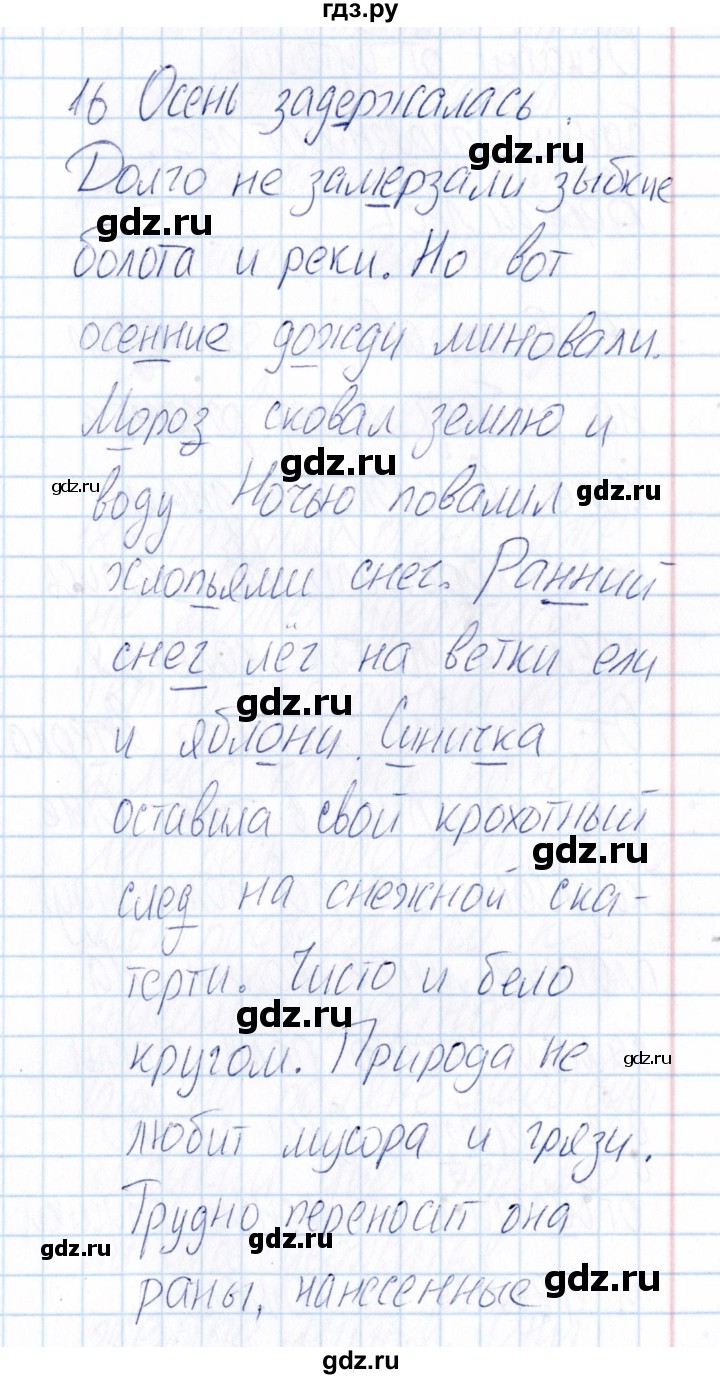 гдз.ру
16 Осень задержалась.
gdz.ru
Долго не замерзали зыбкие
gdz.ru
болота и реки. Но вот
осенние дожди миновали.
Мороз сковал землю и
gdz.ru
gdz.ru
gdz.ru
воду. Ночью повалил
хлопьями снег. Ранний
снег лёг на ветки ели
gdz.ru
и яблони. Синичка
оставила свой крохотный
gdz.ru
след на снежной ска-
терти. Чисто и бело
gdz.ru
кругом. Природа не
gdz.ru
любит мусора и грязи.
Трудно переносит она
gdz.ru
gdz.ru
раны, нанесенные
gdz.ru
gdz.ru